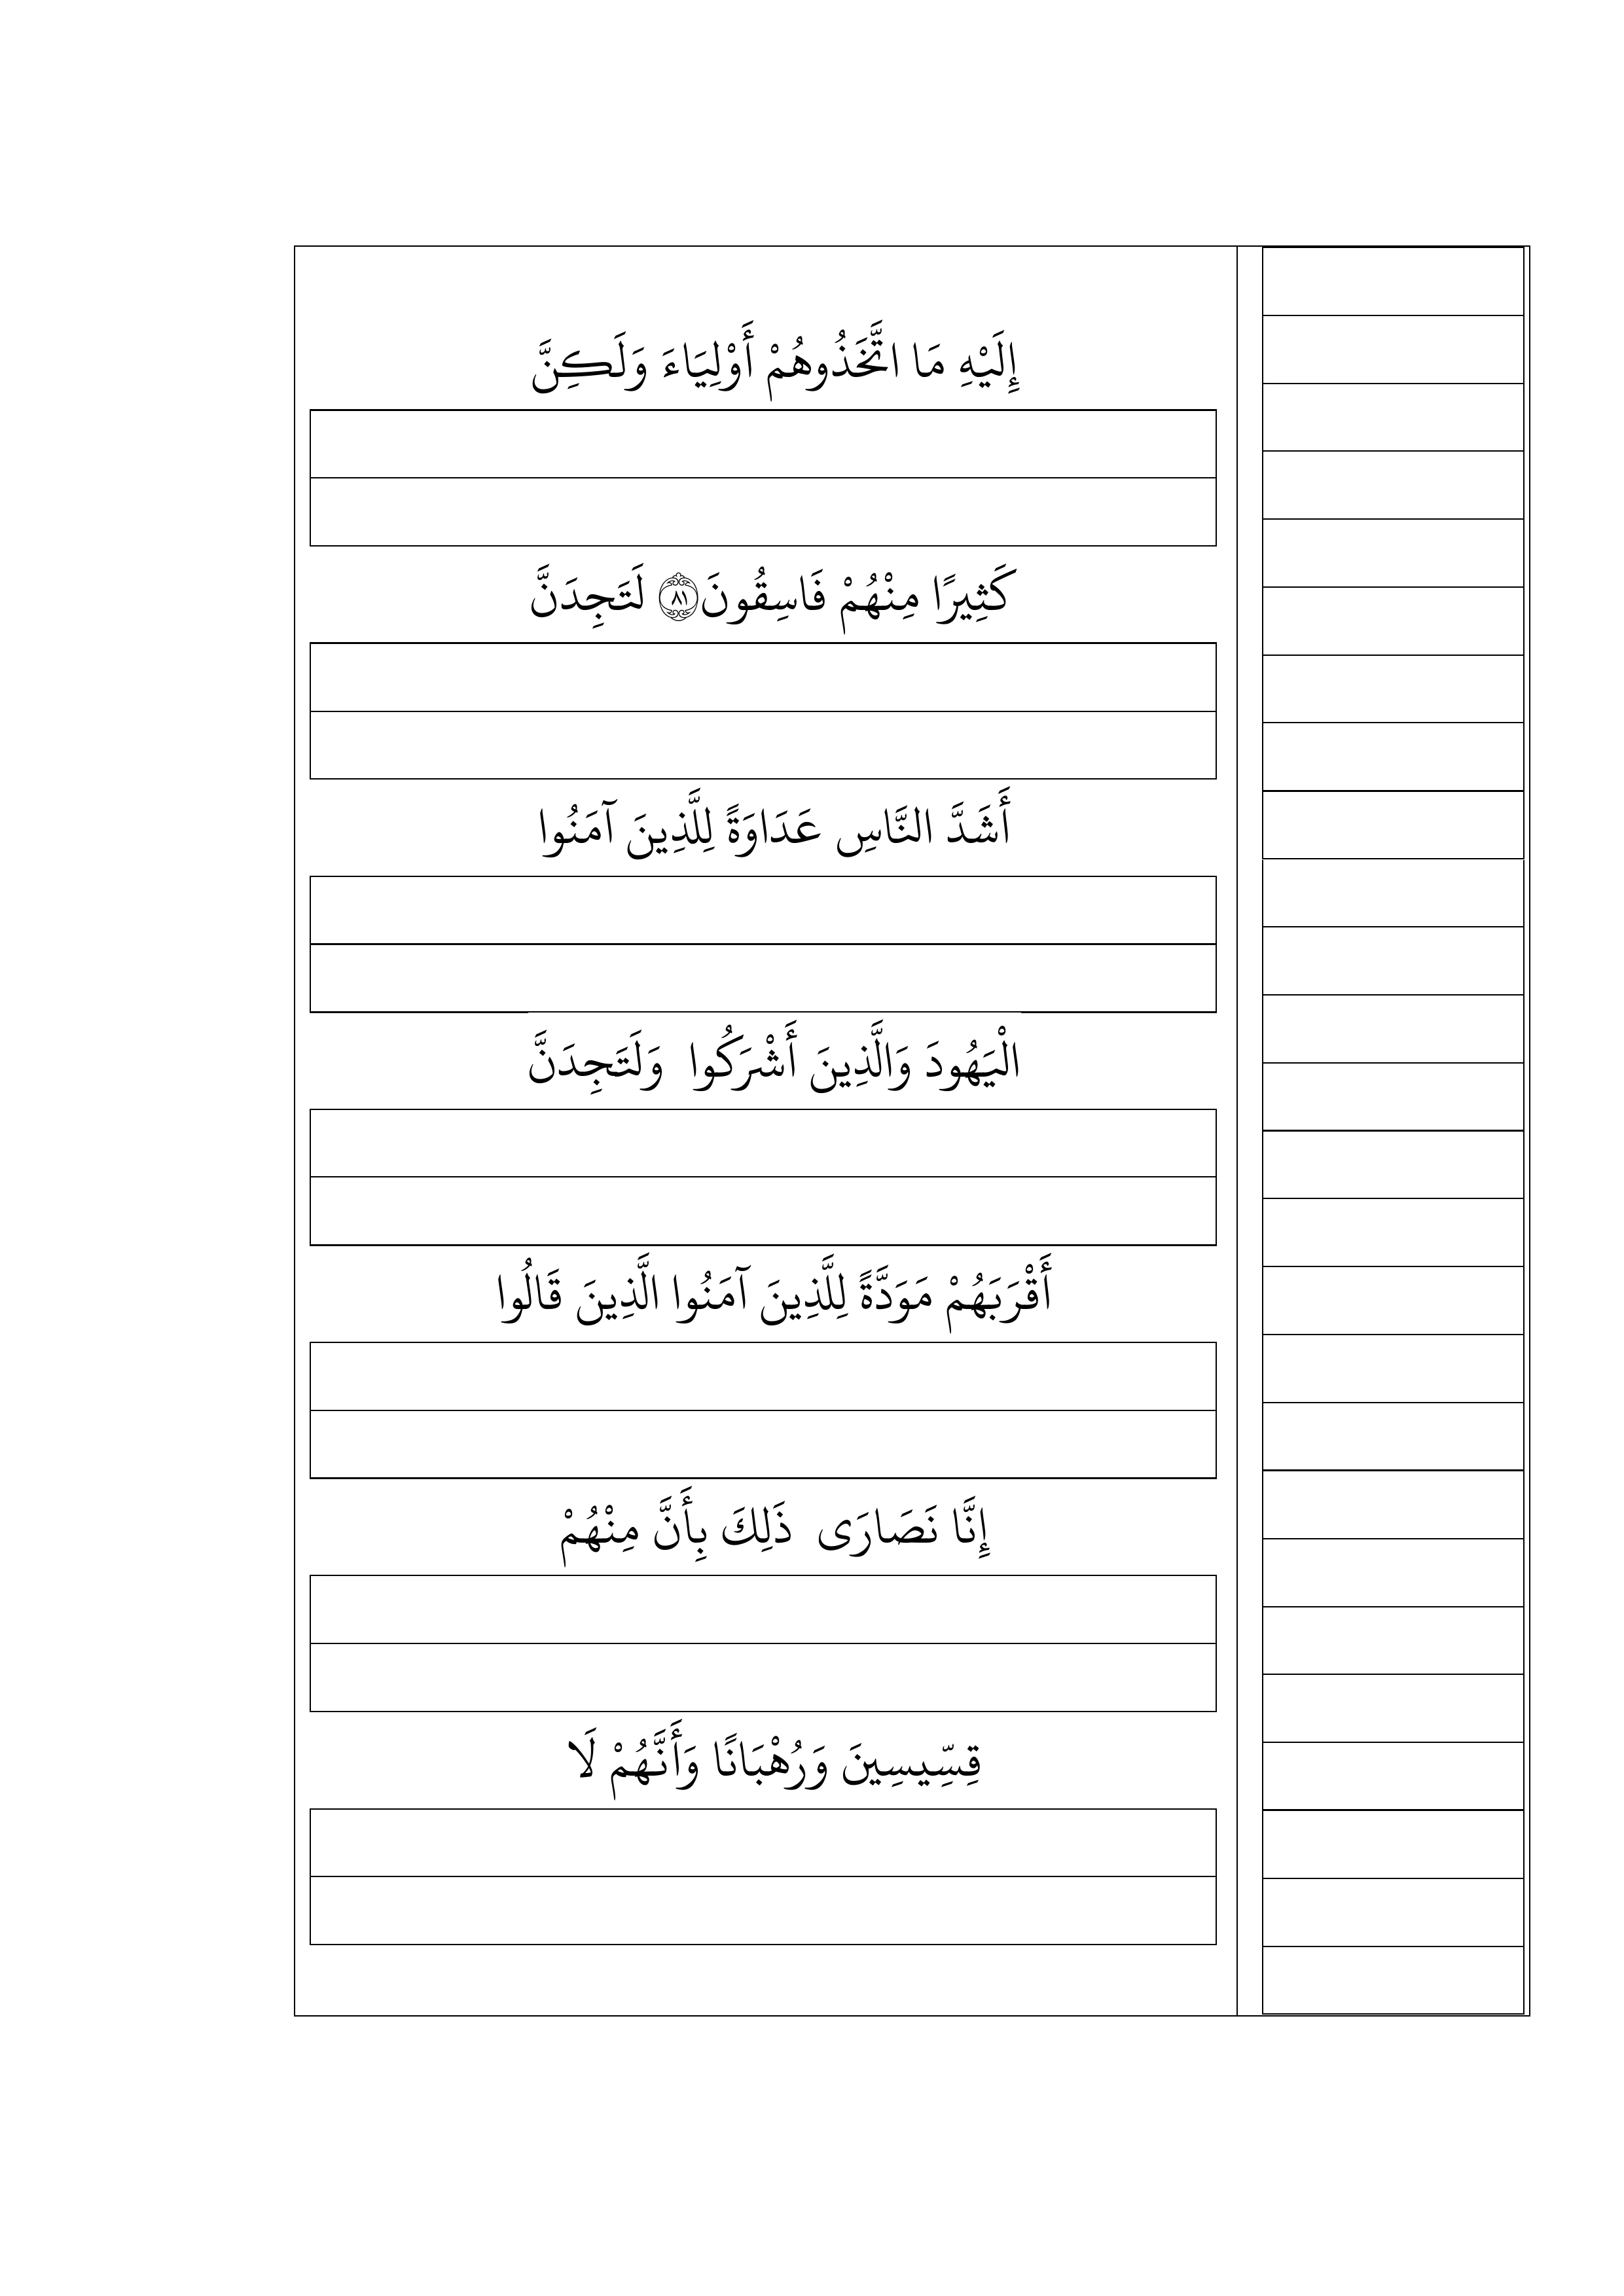 إِلَيْهِ مَا اتَّخَذُوهُمْ أَوْلِيَاءَ وَلَكِنَّ
كَثِيرًا مِنْهُمْ فَاسِقُونَ ﴿٨١﴾ لَتَجِدَنَّ
أَشَدَّ النَّاسِ عَدَاوَةً لِلَّذِينَ آمَنُوا
الْيَهُودَ وَالَّذِينَ أَشْرَكُوا وَلَتَجِدَنَّ
أَقْرَبَهُمْ مَوَدَّةً لِلَّذِينَ آمَنُوا الَّذِينَ قَالُوا
إِنَّا نَصَارَى ذَلِكَ بِأَنَّ مِنْهُمْ
قِسِّيسِينَ وَرُهْبَانًا وَأَنَّهُمْ لَا